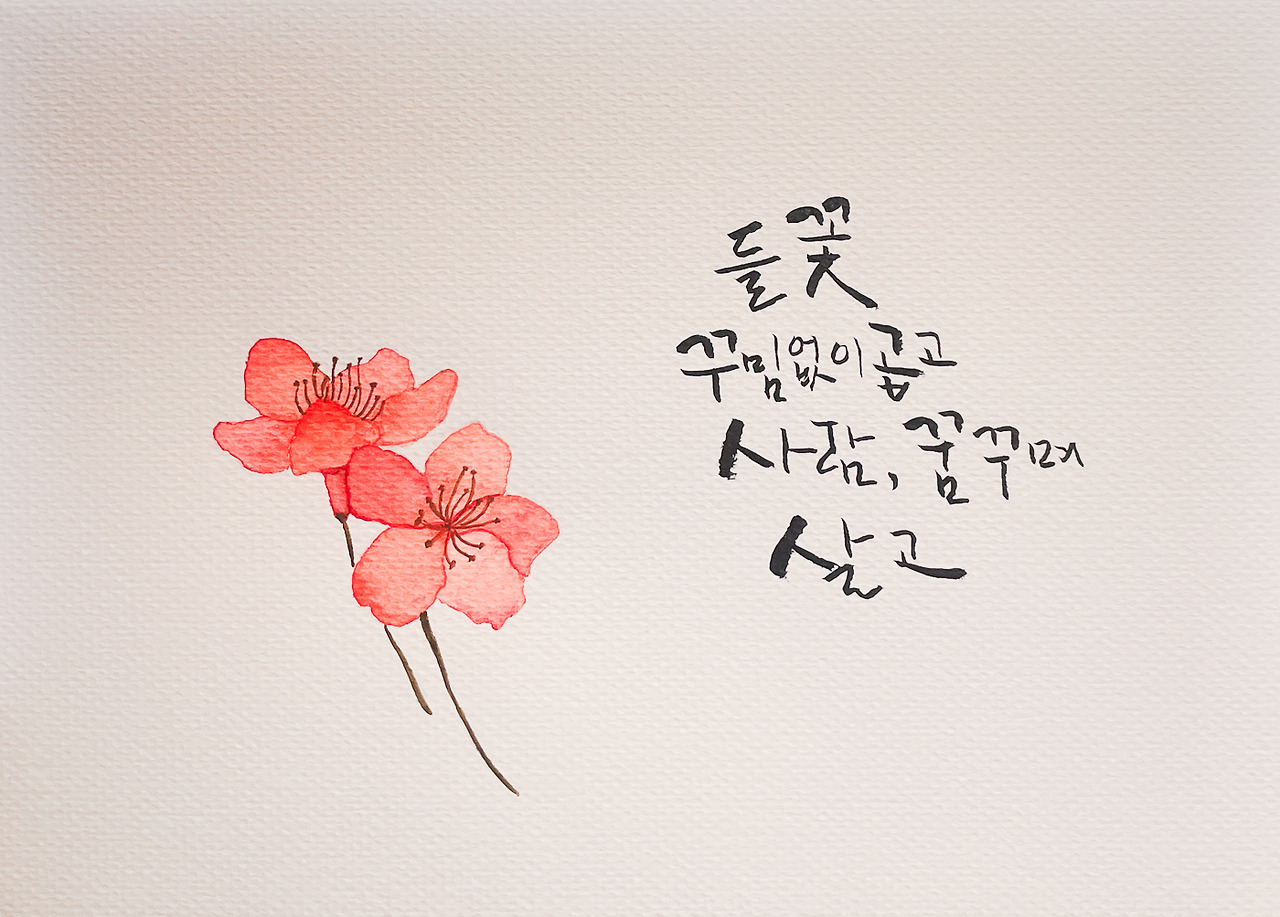 들꽃
꾸밈없이 곱고
사람, 꿈꾸며
살고